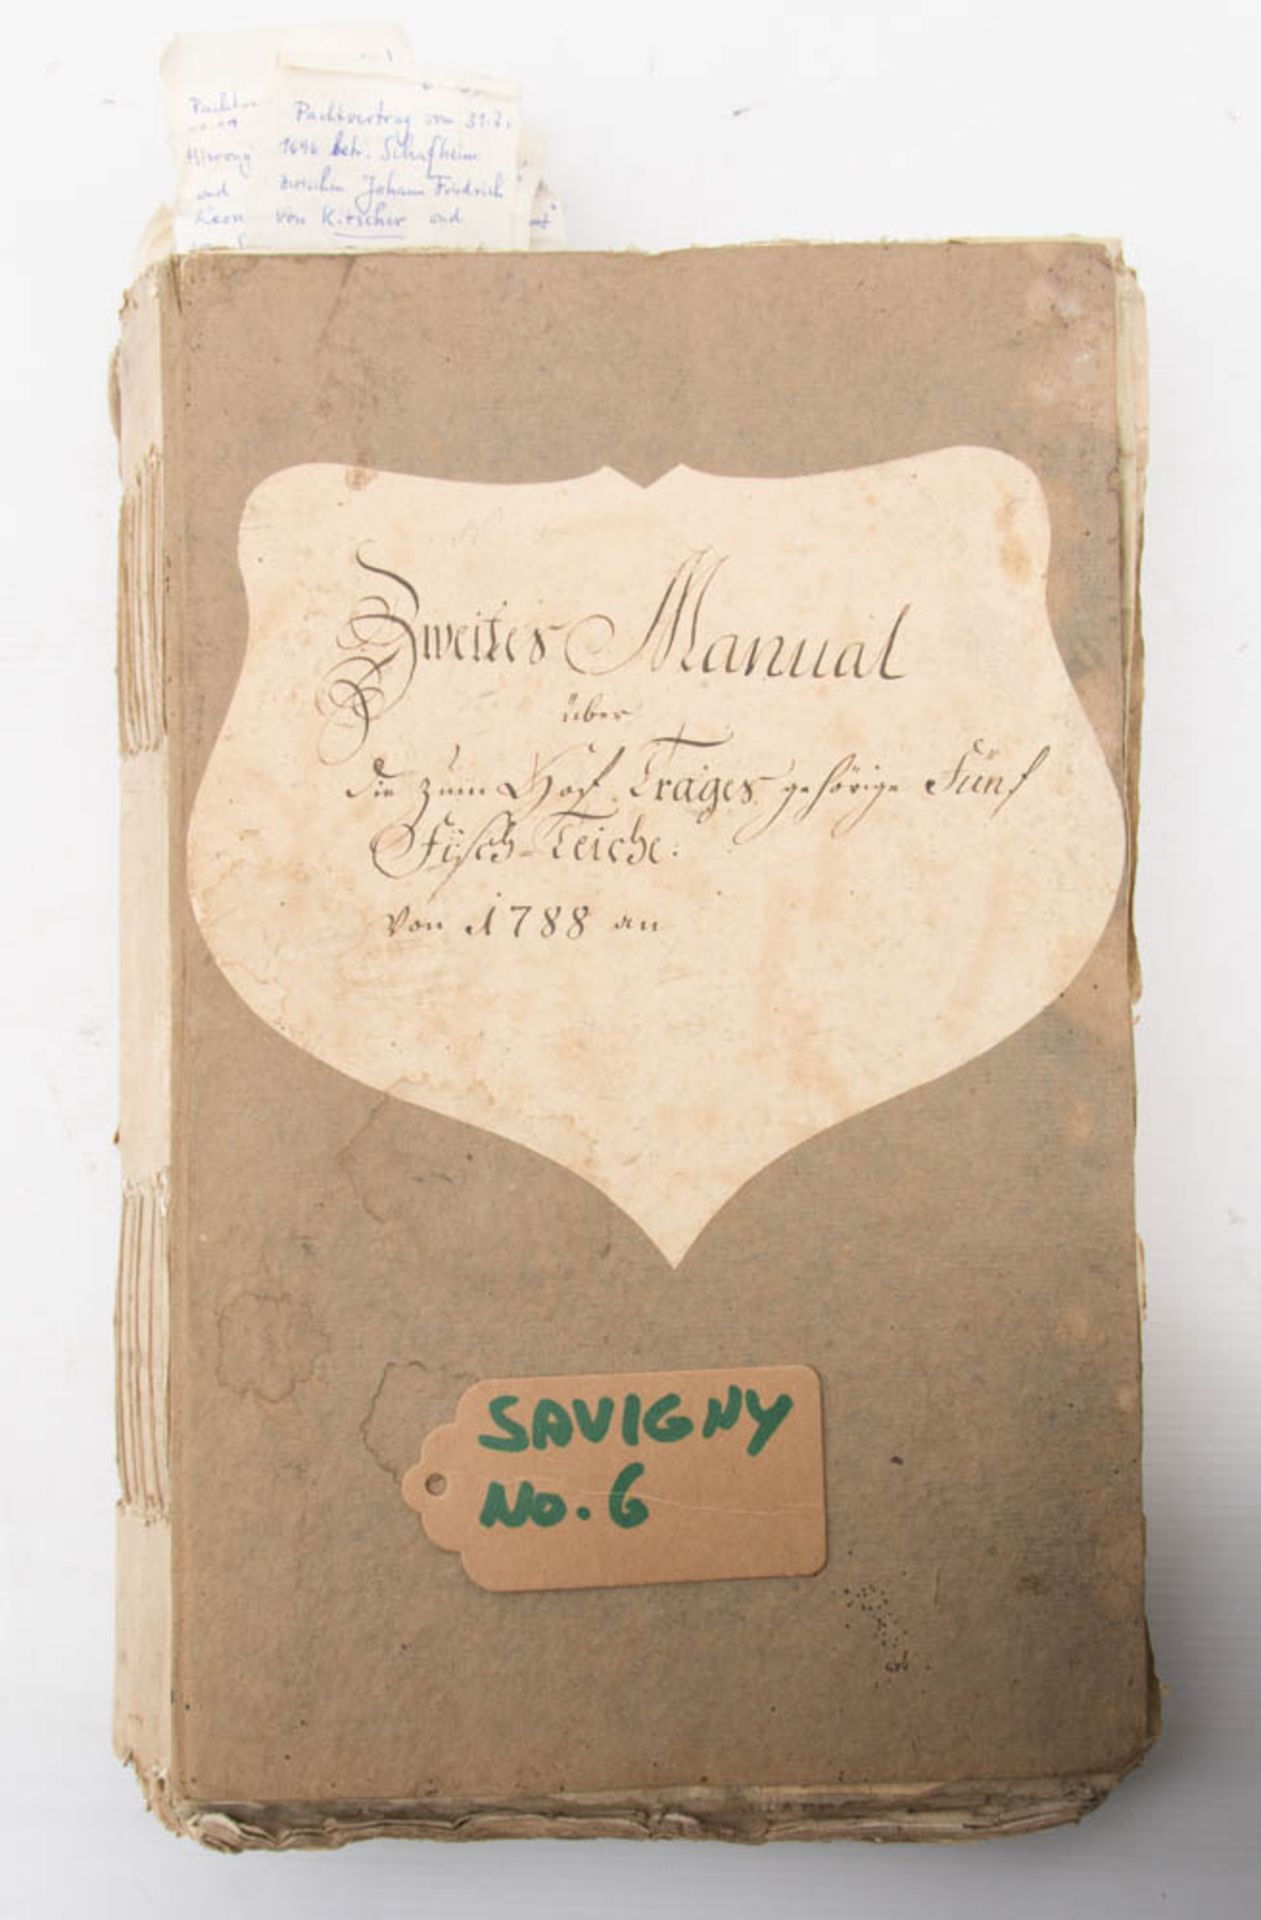 Pachtvertrag vom 31.7.
1696 betr. Schafheim
zwischen Johann Friedrich
von Kirscher und
und
Zweites Manual
über
die zum Hof Trages gehörige Fünf
Fisch-Teiche.
Von 1788 an
SAVIGNY
No. 6